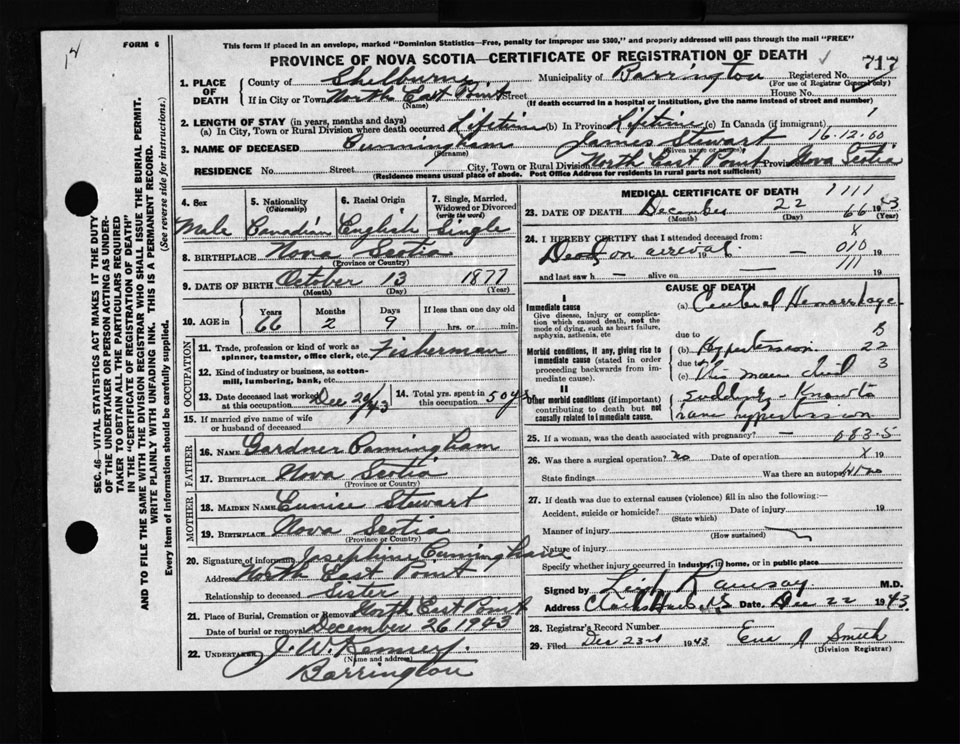 14
FORM 6
This form if placed in an envelope, marked "Dominion Statistics—Free, penalty for improper use $300," and properly addressed will pass through the mail "FREE"
PROVINCE OF NOVA SCOTIA—CERTIFICATE OF REGISTRATION OF DEATH
717
1. PLACE OF DEATH County of Shelburne Municipality of Barrington Registered No.
(For use of Registrar General only)
If in City or Town North East Point Street House No.
(Name) (If death occurred in a hospital or institution, give the name instead of street and number)
2. LENGTH OF STAY (in years, months and days)
(a) In City, Town or Rural Division where death occurred Lifetim (b) In Province Lifetim (c) In Canada (if immigrant)
16.12.60
3. NAME OF DECEASED Cunningham James Stewart
(Surname) (Given name or names)
RESIDENCE No. Street City, Town or Rural Division North East Point Province Nova Scotia
(Residence means usual place of abode. Post Office Address for residents in rural parts not sufficient)
SEC. 46—VITAL STATISTICS ACT MAKES IT THE DUTY
OF THE UNDERTAKER OR PERSON ACTING AS UNDER-
TAKER TO OBTAIN ALL THE PARTICULARS REQUIRED
IN THE "CERTIFICATE OF REGISTRATION OF DEATH"
AND TO FILE THE SAME WITH THE DIVISION REGISTRAR WHO SHALL ISSUE THE BURIAL PERMIT.
WRITE PLAINLY WITH UNFADING INK. THIS IS A PERMANENT RECORD.
Every item of information should be carefully supplied. (See reverse side for instructions.)
4. Sex 5. Nationality (Citizenship) 6. Racial Origin 7. Single, Married, Widowed or Divorced (write the word)
Male Canadian English Single
8. BIRTHPLACE Nova Scotia
(Province or Country)
9. DATE OF BIRTH October 13 1877
(Month) (Day) (Year)
10. AGE in Years Months Days If less than one day old
66 2 9 hrs. or min.
OCCUPATION
11. Trade, profession or kind of work as spinner, teamster, office clerk, etc. Fisherman
12. Kind of industry or business, as cotton-mill, lumbering, bank, etc.
13. Date deceased last worked at this occupation Dec 20/43
14. Total yrs. spent in this occupation 50 yrs
15. If married give name of wife or husband of deceased
FATHER
16. NAME Gardner Cunningham
17. BIRTHPLACE Nova Scotia
(Province or Country)
MOTHER
18. MAIDEN NAME Eunice Stewart
19. BIRTHPLACE Nova Scotia
(Province or Country)
20. Signature of informant Josephine Cunningham
Address North East Point
Relationship to deceased Sister
21. Place of Burial, Cremation or Removal North East Point
Date of burial or removal December 26 1943
22. UNDERTAKER J. W. Kenney.
(Name and address)
Barrington
MEDICAL CERTIFICATE OF DEATH
1111
23. DATE OF DEATH December 22 1943
(Month) (Day) (Year)
66
24. I HEREBY CERTIFY that I attended deceased from:
X
Dead on arrival. 19 — 010 19
111
and last saw h — alive on — 19
CAUSE OF DEATH
I
Immediate cause
Give disease, injury or complication which caused death, not the mode of dying, such as heart failure, asphyxia, asthenia, etc
(a) Cerebral Hemorrhage
due to
Morbid conditions, if any, giving rise to immediate cause (stated in order proceeding backwards from immediate cause).
(b) Hypertension 22
due to 3
(c) This man died
II
Other morbid conditions (if important) contributing to death but not causally related to immediate cause.
suddenly - Known to
have hypertension
25. If a woman, was the death associated with pregnancy? — 083-5
26. Was there a surgical operation? no Date of operation X 19
State findings Was there an autopsy? no
27. If death was due to external causes (violence) fill in also the following:—
Accident, suicide or homicide? Date of injury 19
(State which)
Manner of injury
(How sustained)
Nature of injury
Specify whether injury occurred in industry, in home, or in public place
Signed by Leigh Ramsay. M.D.
Address Clarks Harbour N.S. Date. Dec 22 1943
28. Registrar's Record Number
29. Filed Dec 23rd 1943 Smith
(Division Registrar)